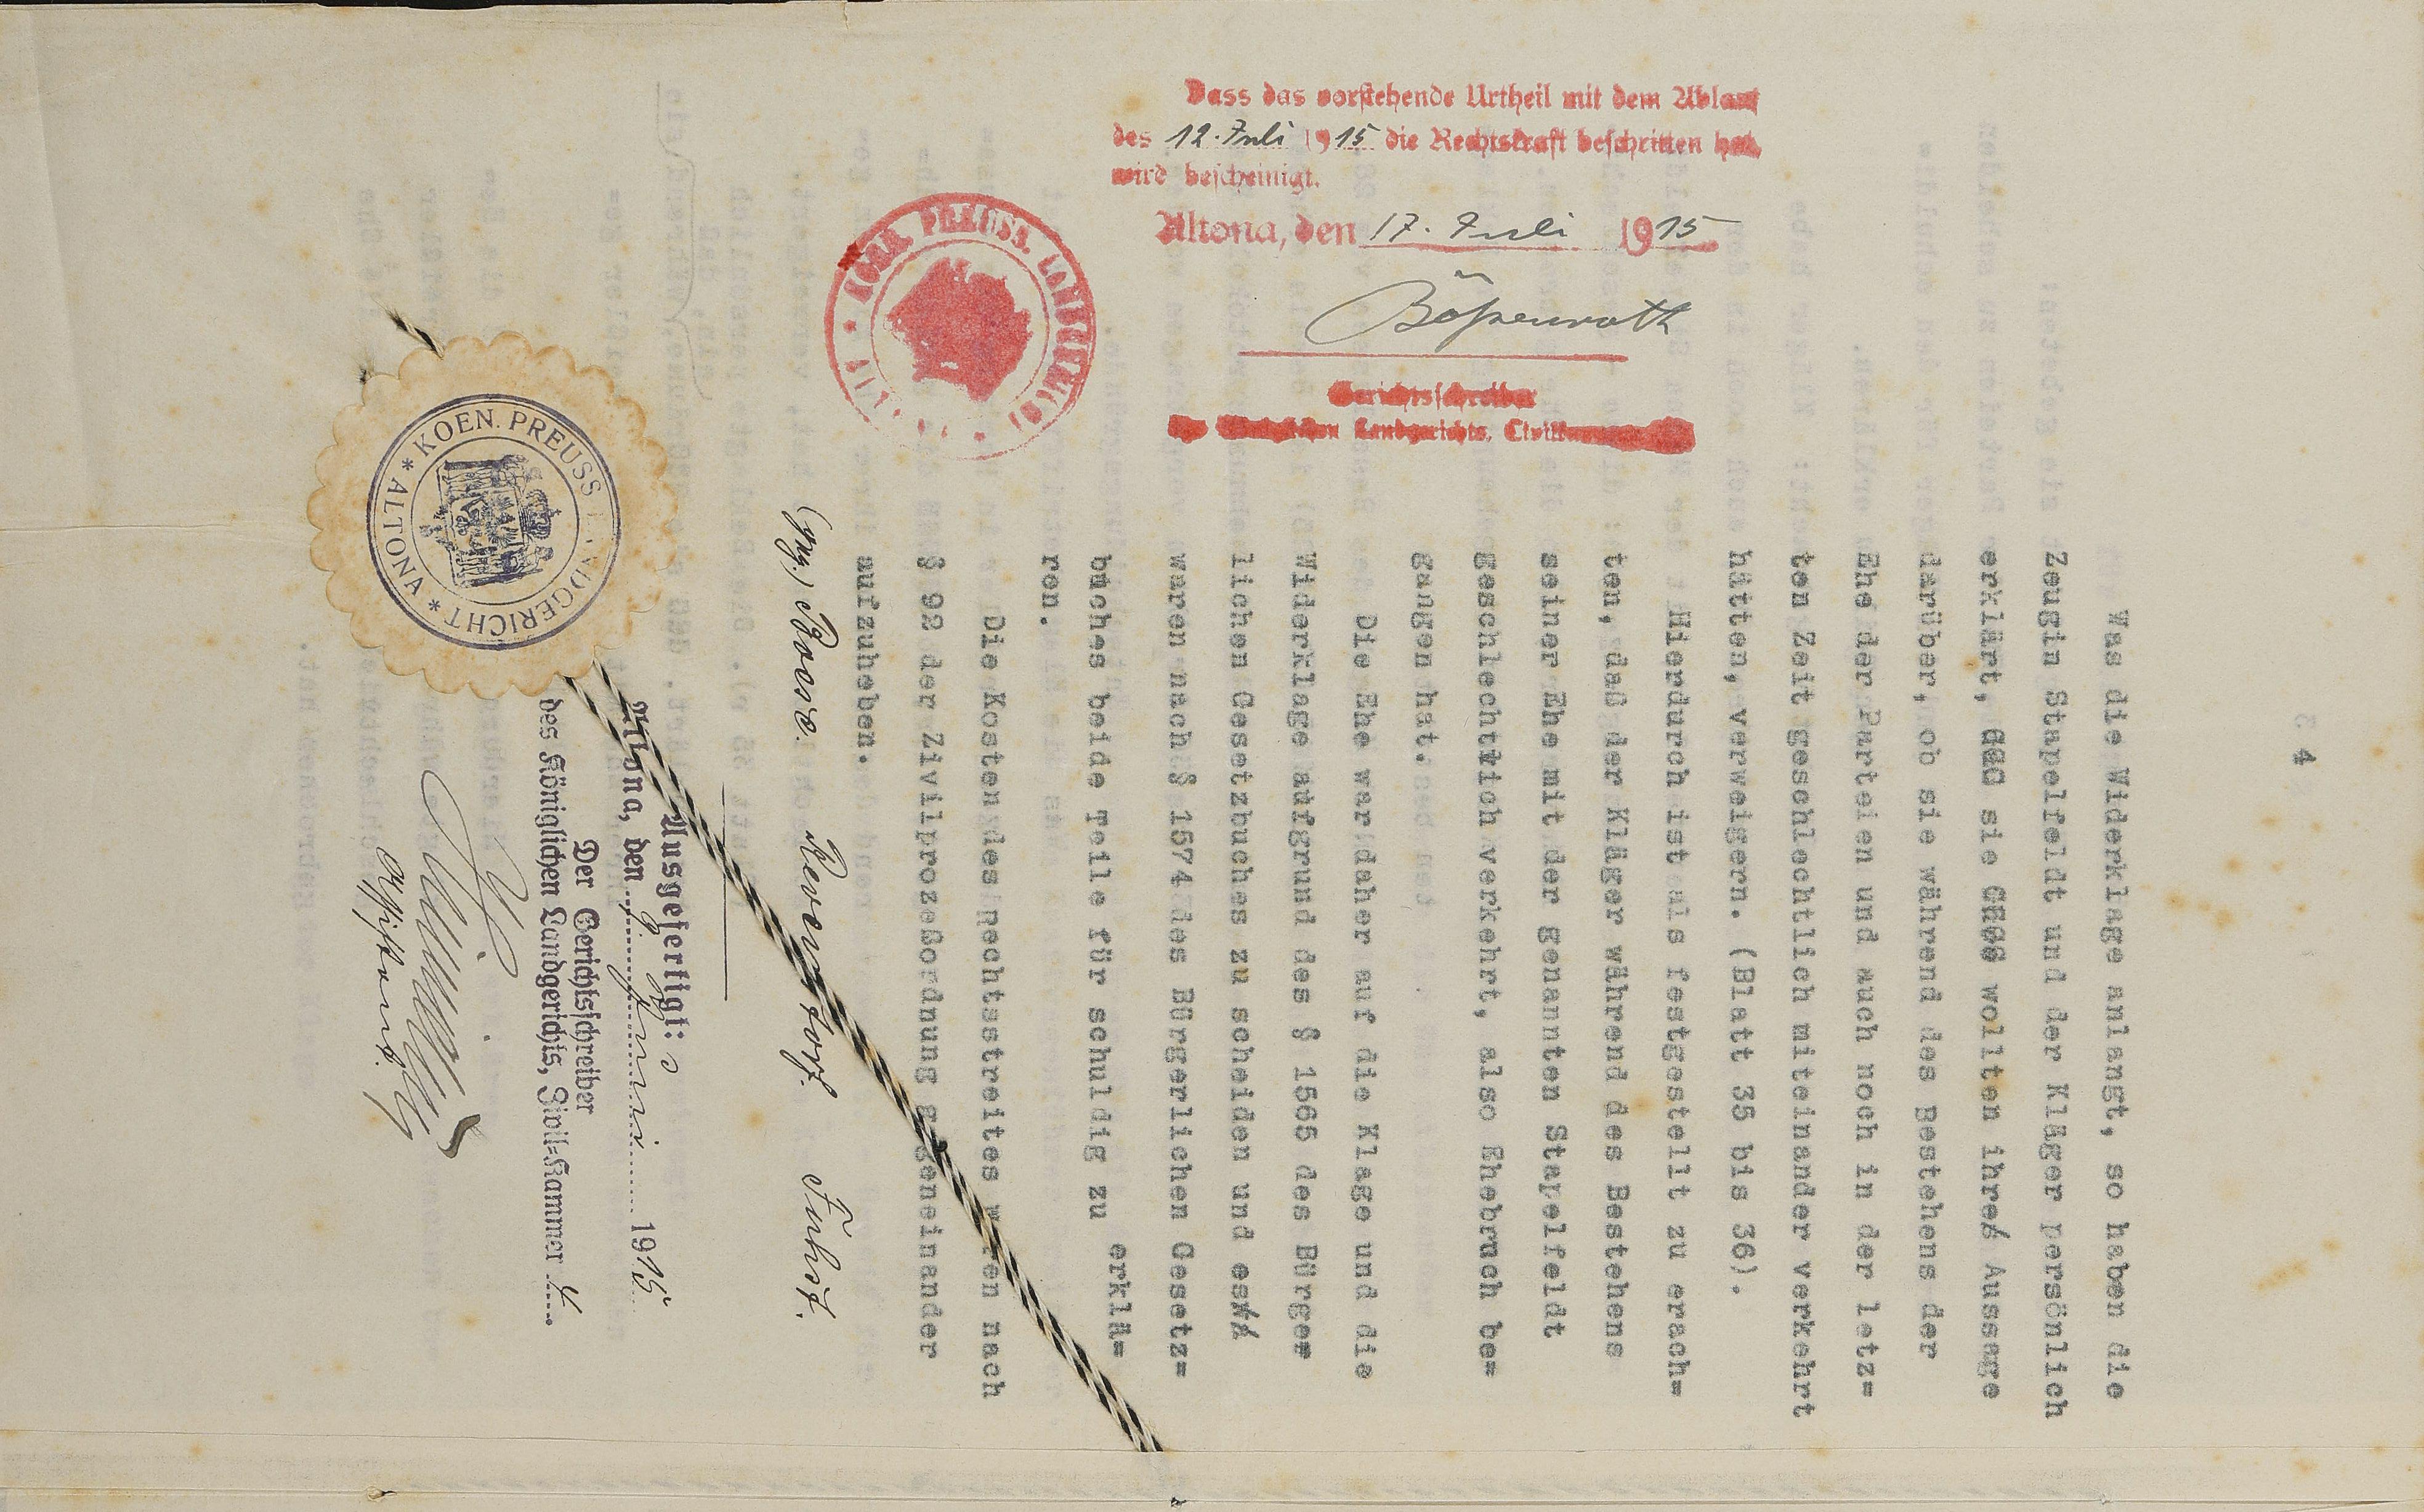 4
Was die Widerklage anlangt, so haben die
Zeugin Stapelfeldt und der Kläger persönlich
erklärt, daß sie wollten ihre Aussage
darüber, ob sie während des Bestehens der
Ehe der Parteien und auch noch in der letz=
ten Zeit geschlechtlich miteinander verkehrt
hätten, verweigern. (Blatt 35 bis 36).
Hierdurch ist als festgestellt zu erach=
ten, daß der Kläger während des Bestehens
seiner Ehe mit der genannten Stapelfeldt
geschlechtlich verkehrt, also Ehebruch be=
gangen hat.
Die Ehe war daher auf die Klage und die
Widerklage aufgrund des § 1565 des Bürger
lichen Gesetzbuches zu scheiden und es
waren nach § 1574 des Bürgerlichen Gesetz=
buches beide Teile für schuldig zu erklä=
ren.
Die Kosten des Rechtsstreites waren nach
§ 92 der Zivilprozeßordnung gegeneinander
aufzuheben.
(gez.) Boose. Reventlow. Fuhst.
Ausgefertigt:
Altona, den 9. Juni 1915
Der Gerichtsschreiber
des Königlichen Landgerichts, Zivil=Kammer 4
KOEN. PREUSS LANDGERICHT * ALTONA *
Dass das vorstehende Urtheil mit dem Ablauf
des 12. Juli 1915 die Rechtskraft beschritten hat,
wird bescheinigt.
Altona, den 17. Juli 1915
Böhsenroth
Gerichtsschreiber
des Königlichen Landgerichts, Civilkammer
KÖN. PREUSS. LANDGERICHT